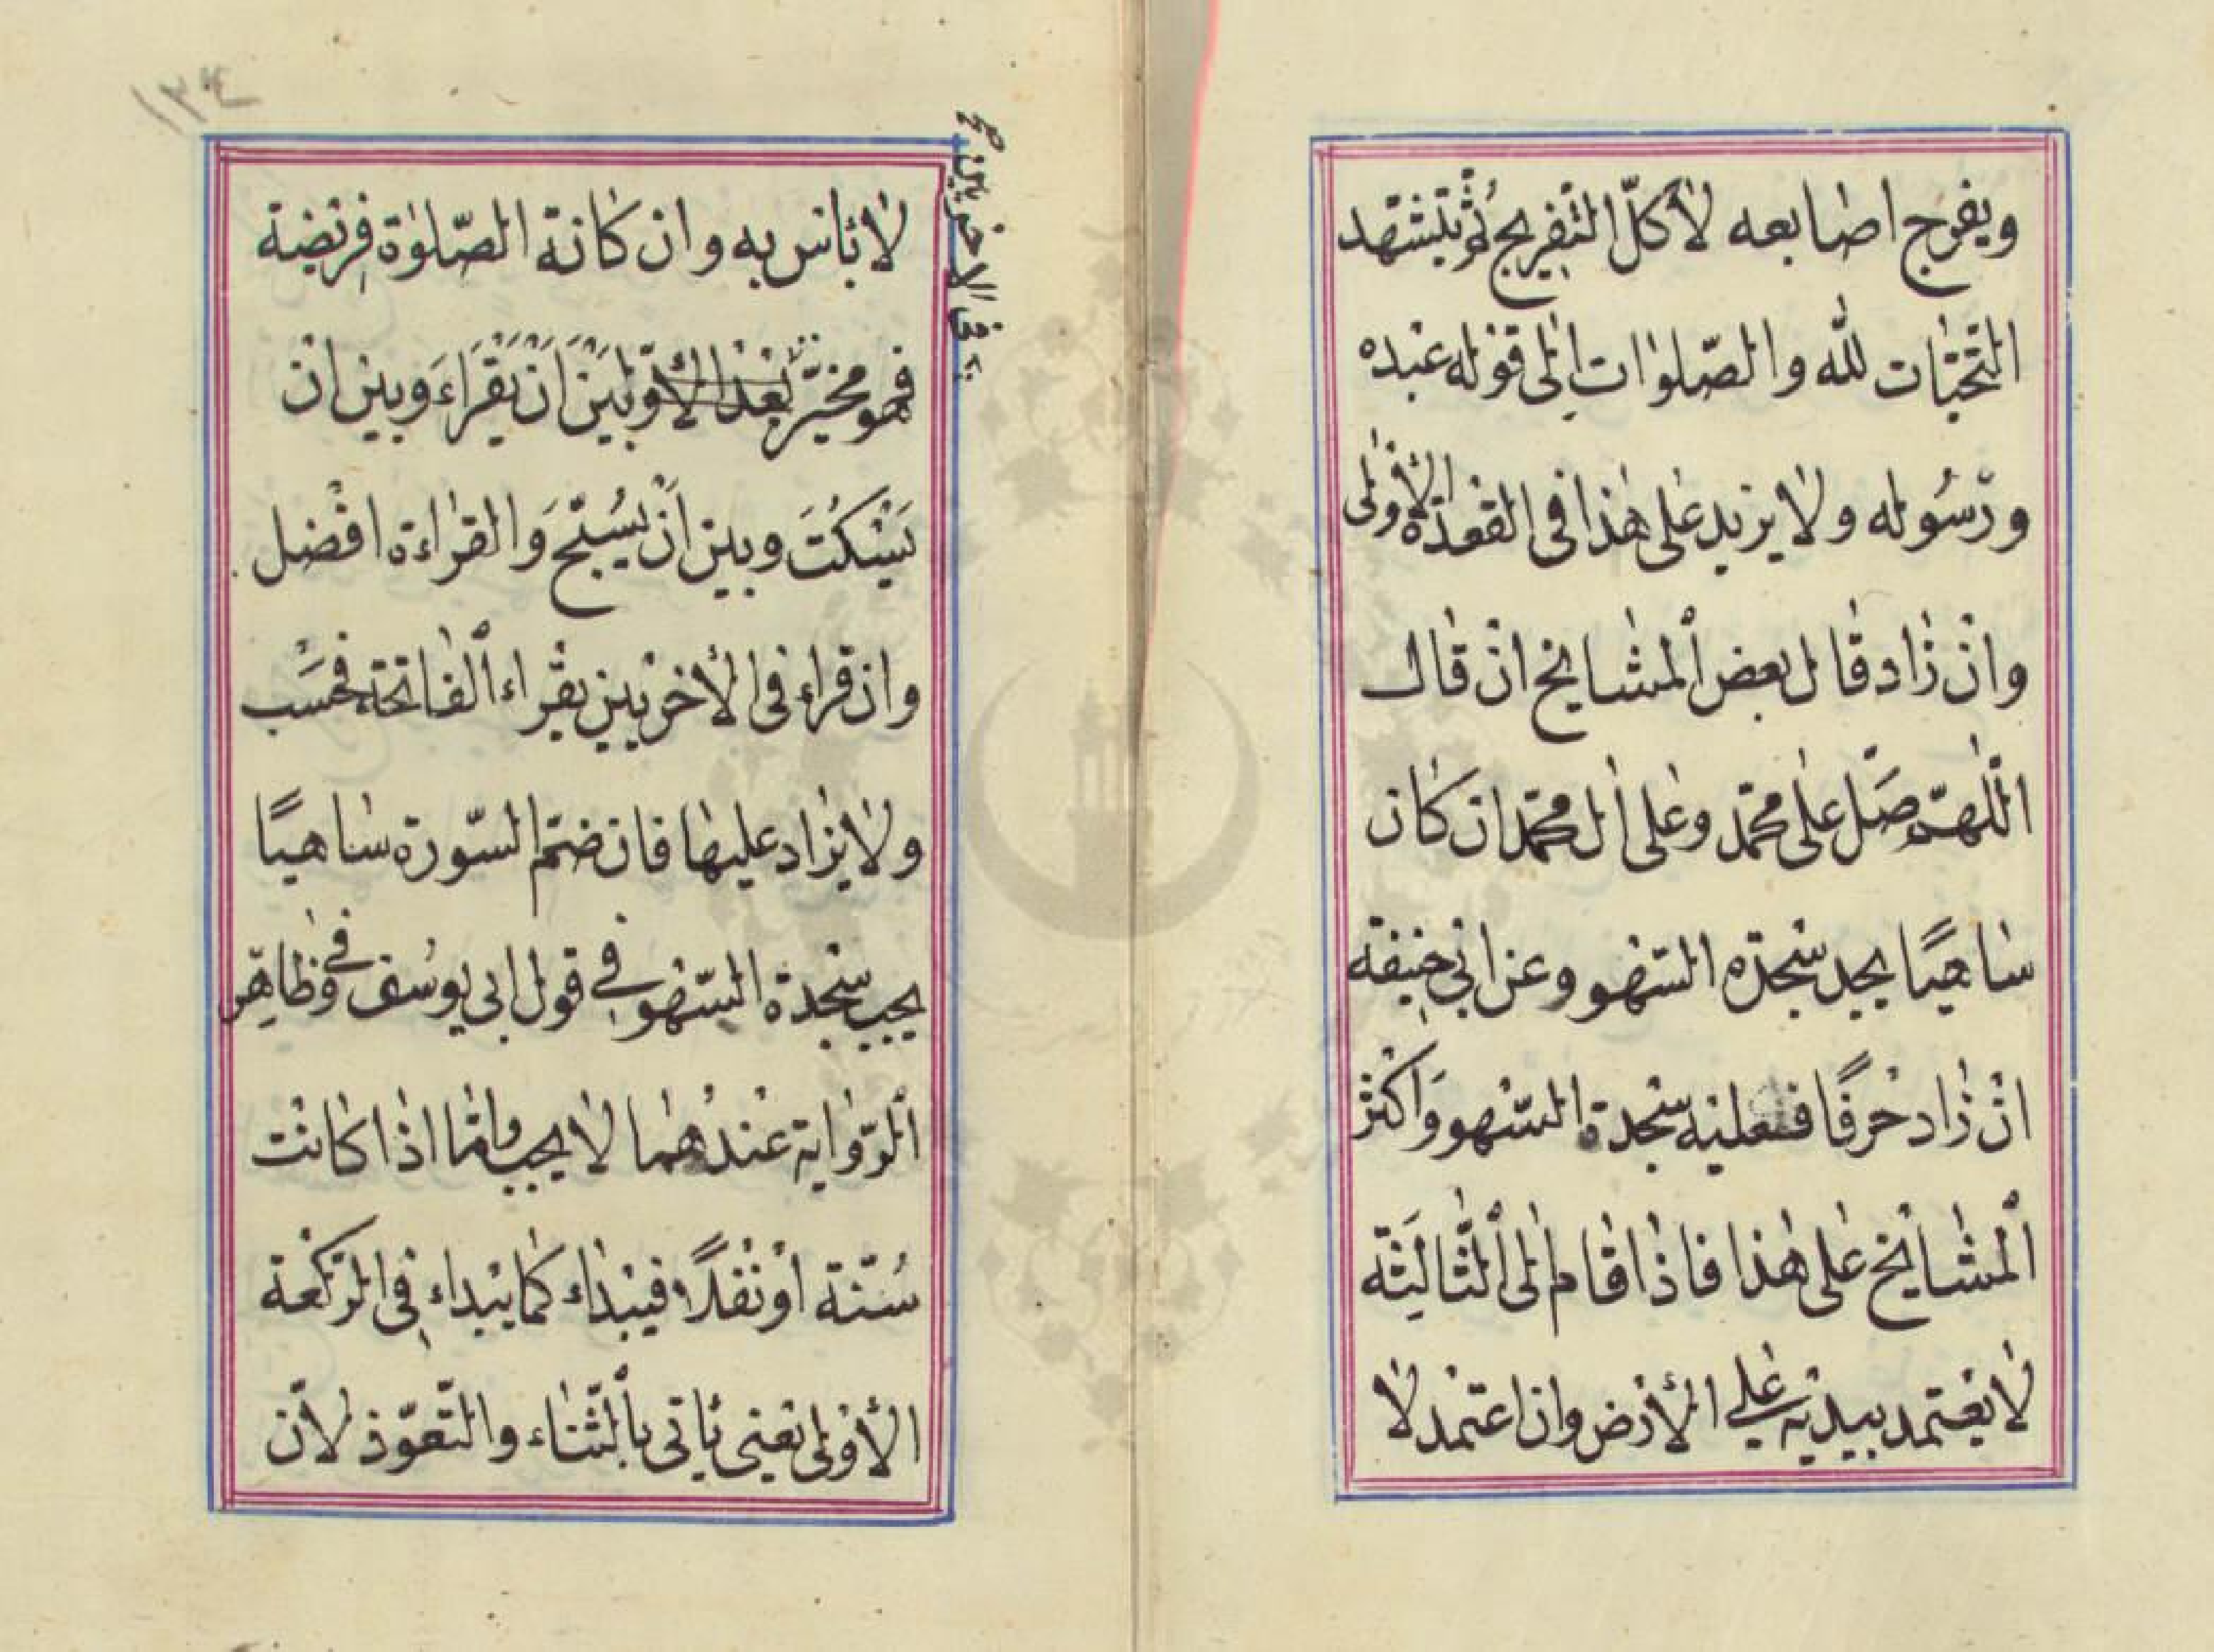 ويفرج اصابعه لا كلّ التفريج ثمّ يتشهّد
التّحيّات لله والصّلوات الى قوله عبده
ورسوله ولا يزيد على هذا فى القعدة الأولى
وان زاد قال بعض المشايخ ان قال
اللّهمّ صلّ على محمّد وعلى ال محمّد ان كان
ساهيًا يجد سجدة السّهو وعن ابى حنيفة
ان زاد حرفًا فعليه سجدة السّهو واكثر
المشايخ على هذا فاذا قام الى الثّالثة
لا يعتمد بيديه على الأرض وان اعتمد لا
١٣٤
لا بأس به وان كانة الصّلوة فريضة
فهو مخيّر بين ان يقراء وبين ان
فى الاخريين صح
يسكت وبين ان يسبّح والقراءة افضل
وان قراء فى الأخريين يقراء الفاتحة فحسب
ولا يزاد عليها فان ضمّ السّورة ساهيًا
يجب سجدة السّهو في قول ابى يوسف وفي ظاهر
الرّواية عندهما لا يجب وامّا اذا كانت
سنّة او نفلًا فيبداء كما يبداء فى الرّكعة
الأولى يعنى يأتى بالثّناء والتّعوّذ لأنّ